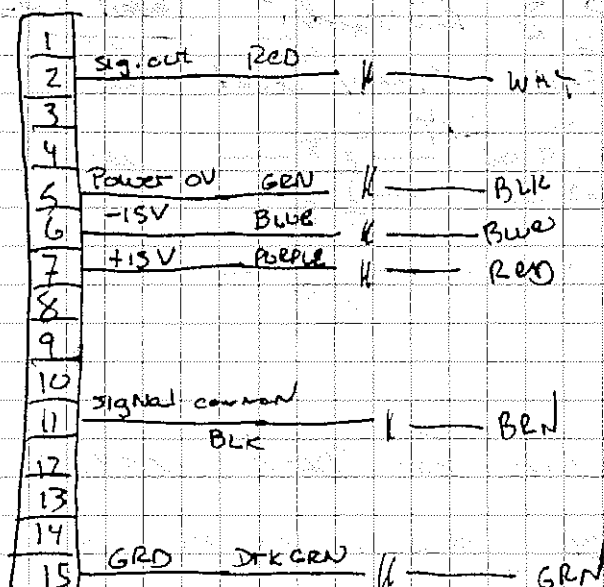 1
2 sig. out RED WHT
3
4
5 Power 0V GRN BLK
6 -15V BLUE BLUE
7 +15V PURPLE RED
8
9
10
11 signal common BLK BRN
12
13
14
15 GRD DRK GRN GRN